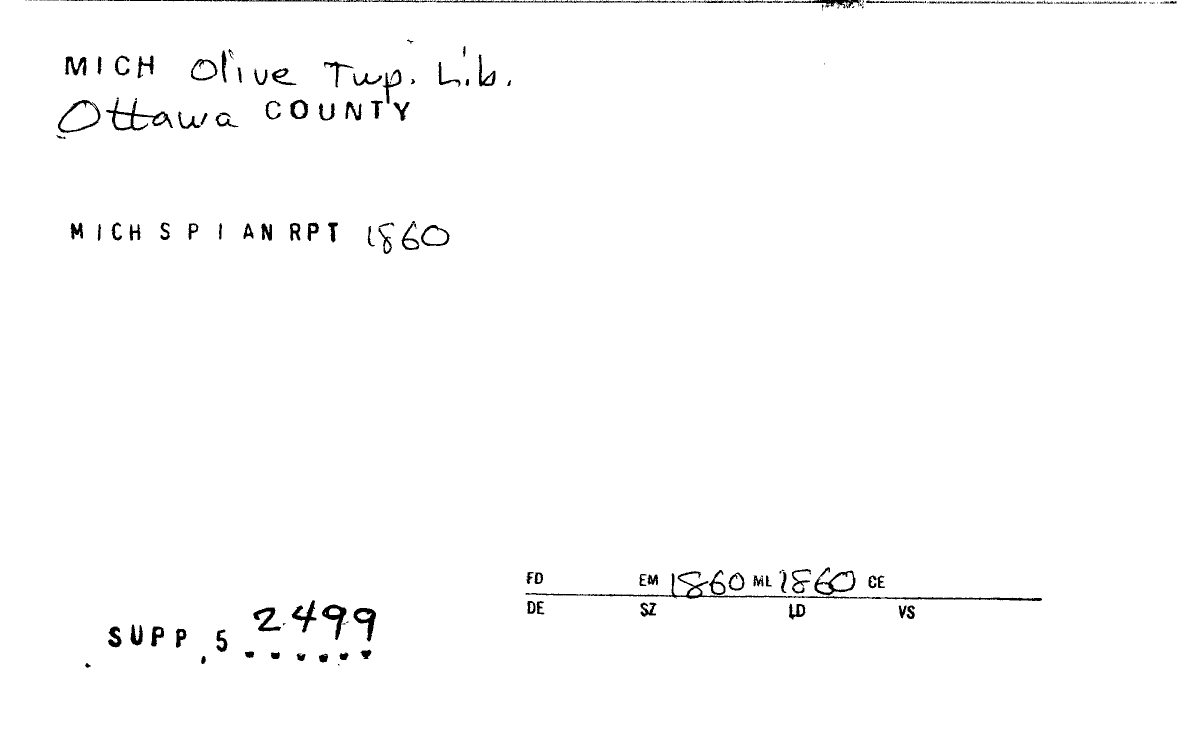 MICH Olive Twp. Lib.
Ottawa COUNTY
MICH SPI AN RPT 1860
FD EM 1860 ML 1860 CE
DE SZ LD VS
SUPP, 5 2499